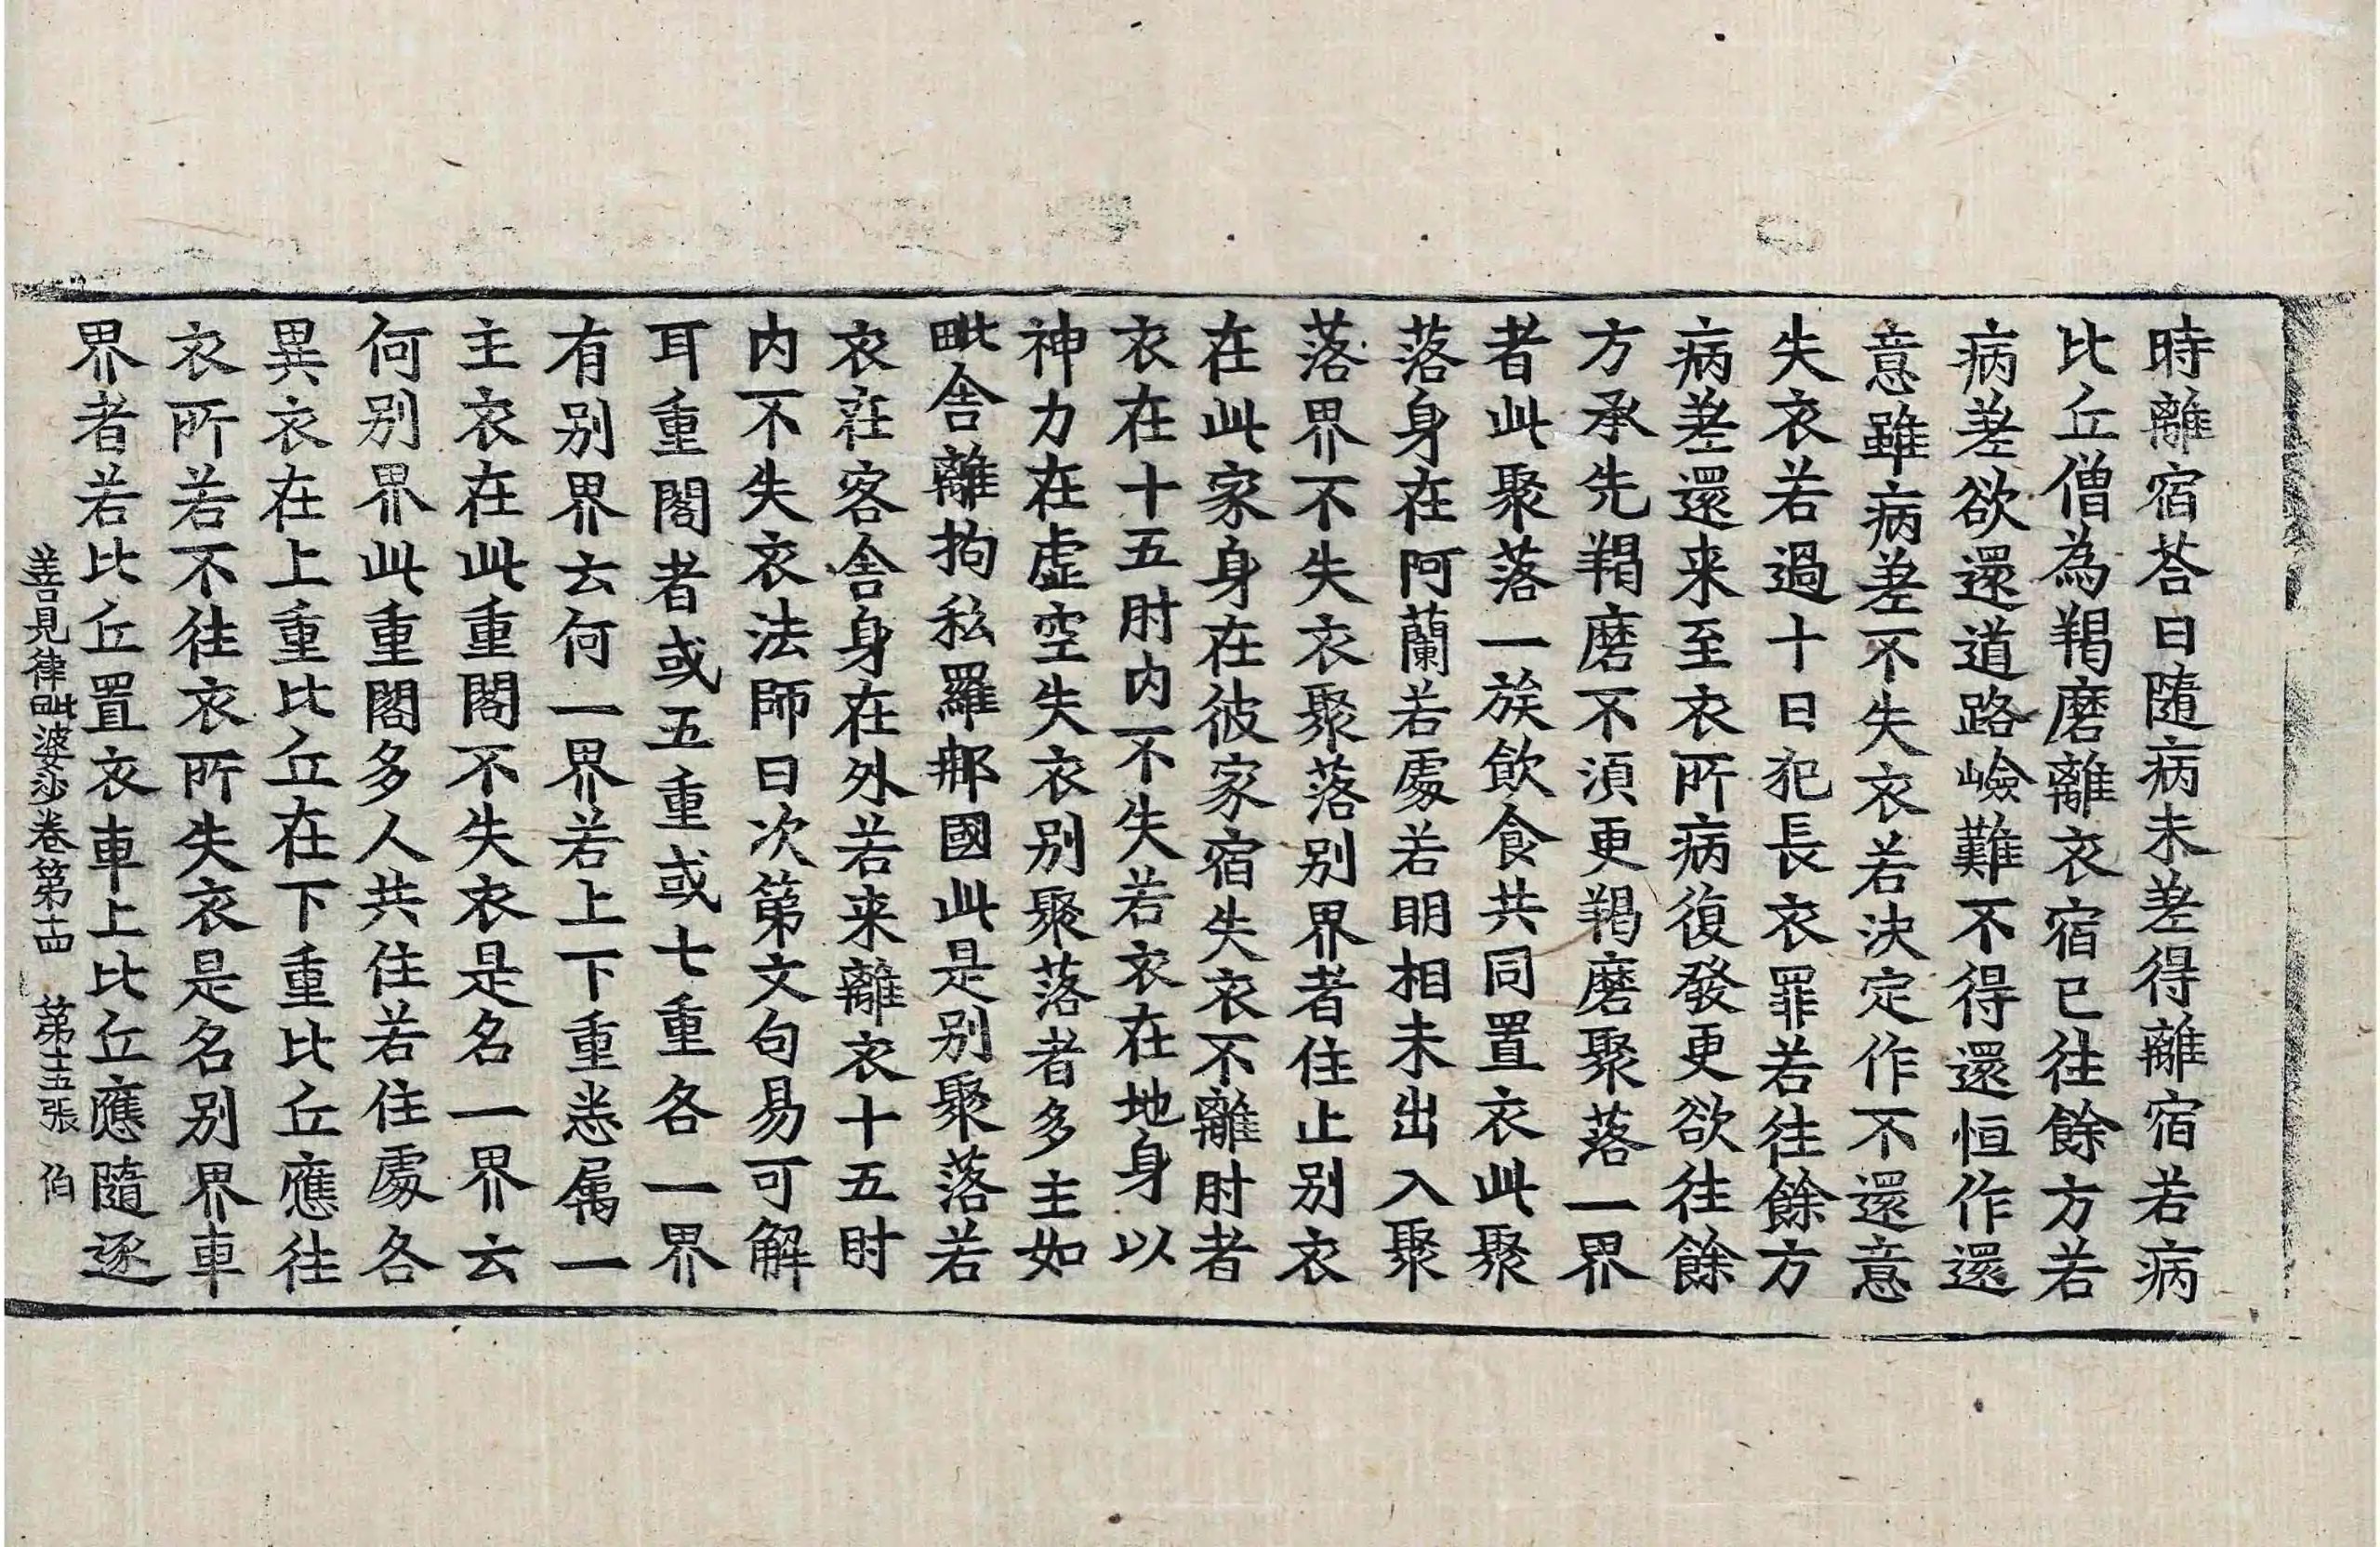 時離宿荅曰隨病未差得離宿若病
比丘僧為羯磨離衣宿已往餘方若
病差欲還道路嶮難不得還恒作還
意雖病差不失衣若決定作不還意
失衣若過十日犯長衣罪若往餘方
病差還来至衣所病復發更欲往餘
方承先羯磨不湏更羯磨聚落一界
者此聚落一族飲食共同置衣此聚
落身在阿蘭若處若明相未出入聚
落界不失衣聚落別界者住止別衣
在此家身在彼家宿失衣不離肘者
衣在十五肘内不失若衣在地身以
神力在虛空失衣別聚落者多主如
毗舍離拘私羅郍國此是別聚落若
衣在客舍身在外若来離衣十五肘
内不失衣法師曰次第文句易可解
耳重閣者或五重或七重各一界
有別界云何一界若上下重悉属一
主衣在此重閣不失衣是名一界云
何別界此重閣多人共住若住處各
異衣在上重比丘在下重比丘應往
衣所若不往衣所失衣是名別界車
界者若比丘置衣車上比丘應隨逐
善見律毗婆沙卷第十四 第十五張 伯